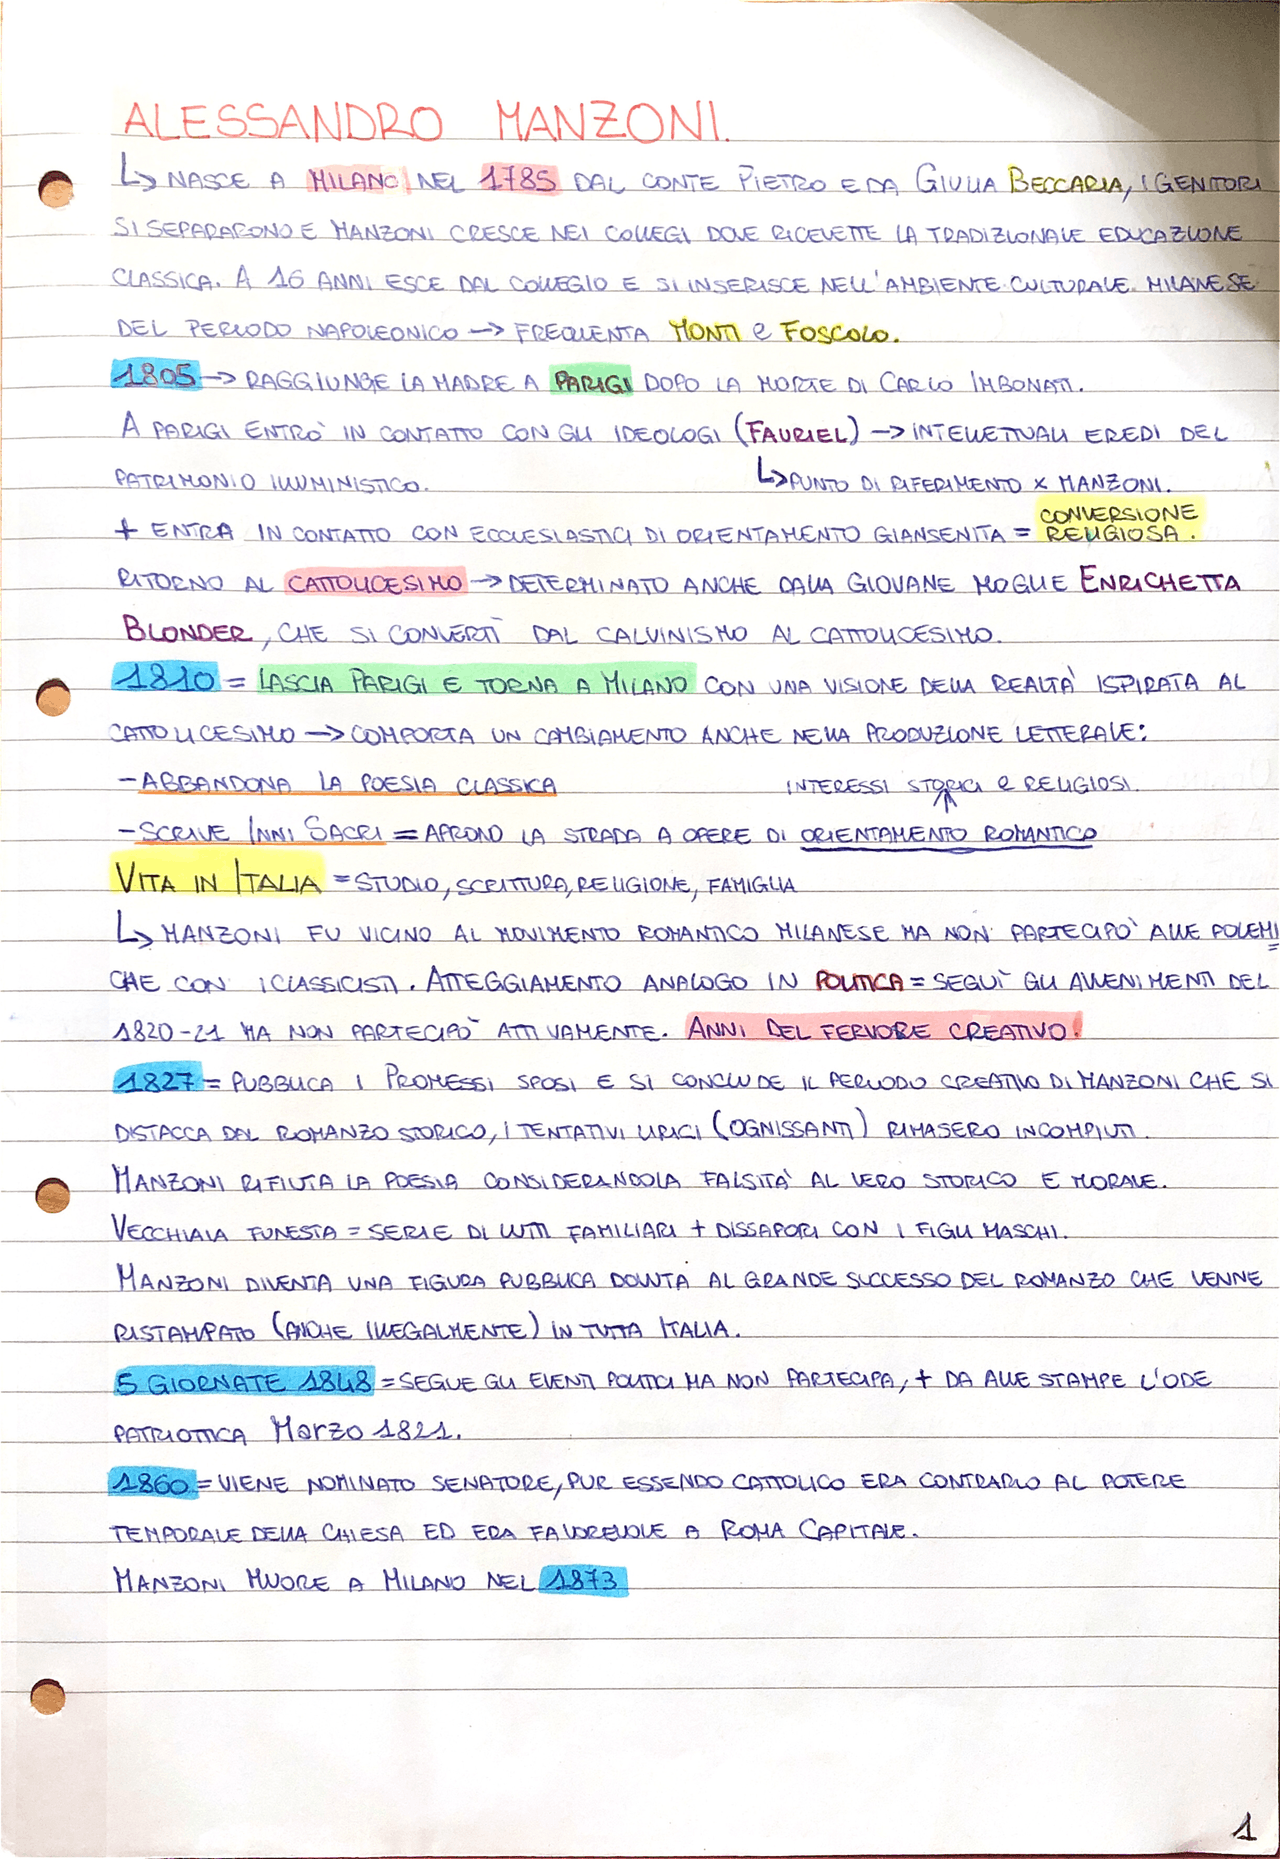 ALESSANDRO MANZONI.
↳ NASCE A MILANO NEL 1785 DAL CONTE PIETRO E DA GIULIA BECCARIA, I GENITORI
SI SEPARARONO E MANZONI CRESCE NEI COLLEGI DOVE RICEVETTE LA TRADIZIONALE EDUCAZIONE
CLASSICA. A 16 ANNI ESCE DAL COLLEGIO E SI INSERISCE NELL'AMBIENTE CULTURALE MILANESE
DEL PERIODO NAPOLEONICO → FREQUENTA MONTI e FOSCOLO.
1805 → RAGGIUNGE LA MADRE A PARIGI DOPO LA MORTE DI CARLO IMBONATI.
A PARIGI ENTRÒ IN CONTATTO CON GLI IDEOLOGI (FAURIEL) → INTELLETTUALI EREDI DEL
PATRIMONIO ILLUMINISTICO. ↳ PUNTO DI RIFERIMENTO X MANZONI.
+ ENTRA IN CONTATTO CON ECCLESIASTICI DI ORIENTAMENTO GIANSENITA = CONVERSIONE RELIGIOSA.
RITORNO AL CATTOLICESIMO → DETERMINATO ANCHE DALLA GIOVANE MOGLIE ENRICHETTA
BLONDER, CHE SI CONVERTÌ DAL CALVINISMO AL CATTOLICESIMO.
1810 = LASCIA PARIGI E TORNA A MILANO CON UNA VISIONE DELLA REALTÀ ISPIRATA AL
CATTOLICESIMO → COMPORTA UN CAMBIAMENTO ANCHE NELLA PRODUZIONE LETTERALE:
- ABBANDONA LA POESIA CLASSICA INTERESSI STORICI e RELIGIOSI.
- SCRIVE INNI SACRI = APRONO LA STRADA A OPERE DI ORIENTAMENTO ROMANTICO
VITA IN ITALIA = STUDIO, SCRITTURA, RELIGIONE, FAMIGLIA
↳ MANZONI FU VICINO AL MOVIMENTO ROMANTICO MILANESE MA NON PARTECIPÒ ALLE POLEMI
CHE CON I CLASSICISTI. ATTEGGIAMENTO ANALOGO IN POLITICA = SEGUÌ GLI AVVENIMENTI DEL
1820-21 MA NON PARTECIPÒ ATTIVAMENTE. ANNI DEL FERVORE CREATIVO!
1827 = PUBBLICA I PROMESSI SPOSI E SI CONCLUDE IL PERIODO CREATIVO DI MANZONI CHE SI
DISTACCA DAL ROMANZO STORICO, I TENTATIVI LIRICI (OGNISSANTI) RIMASERO INCOMPIUTI.
MANZONI RIFIUTA LA POESIA CONSIDERANDOLA FALSITÀ AL VERO STORICO E MORALE.
VECCHIAIA FUNESTA = SERIE DI LUTTI FAMILIARI + DISSAPORI CON I FIGLI MASCHI.
MANZONI DIVENTA UNA FIGURA PUBBLICA DOVUTA AL GRANDE SUCCESSO DEL ROMANZO CHE VENNE
RISTAMPATO (ANCHE ILLEGALMENTE) IN TUTTA ITALIA.
5 GIORNATE 1848 = SEGUE GLI EVENTI POLITICI MA NON PARTECIPA, + DA ALLE STAMPE L'ODE
PATRIOTTICA Marzo 1821.
1860 = VIENE NOMINATO SENATORE, PUR ESSENDO CATTOLICO ERA CONTRARIO AL POTERE
TEMPORALE DELLA CHIESA ED ERA FAVOREVOLE A ROMA CAPITALE.
MANZONI MUORE A MILANO NEL 1873
1